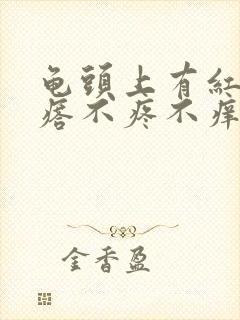 龟頭上有紅
痞不疼不痒
金香盈